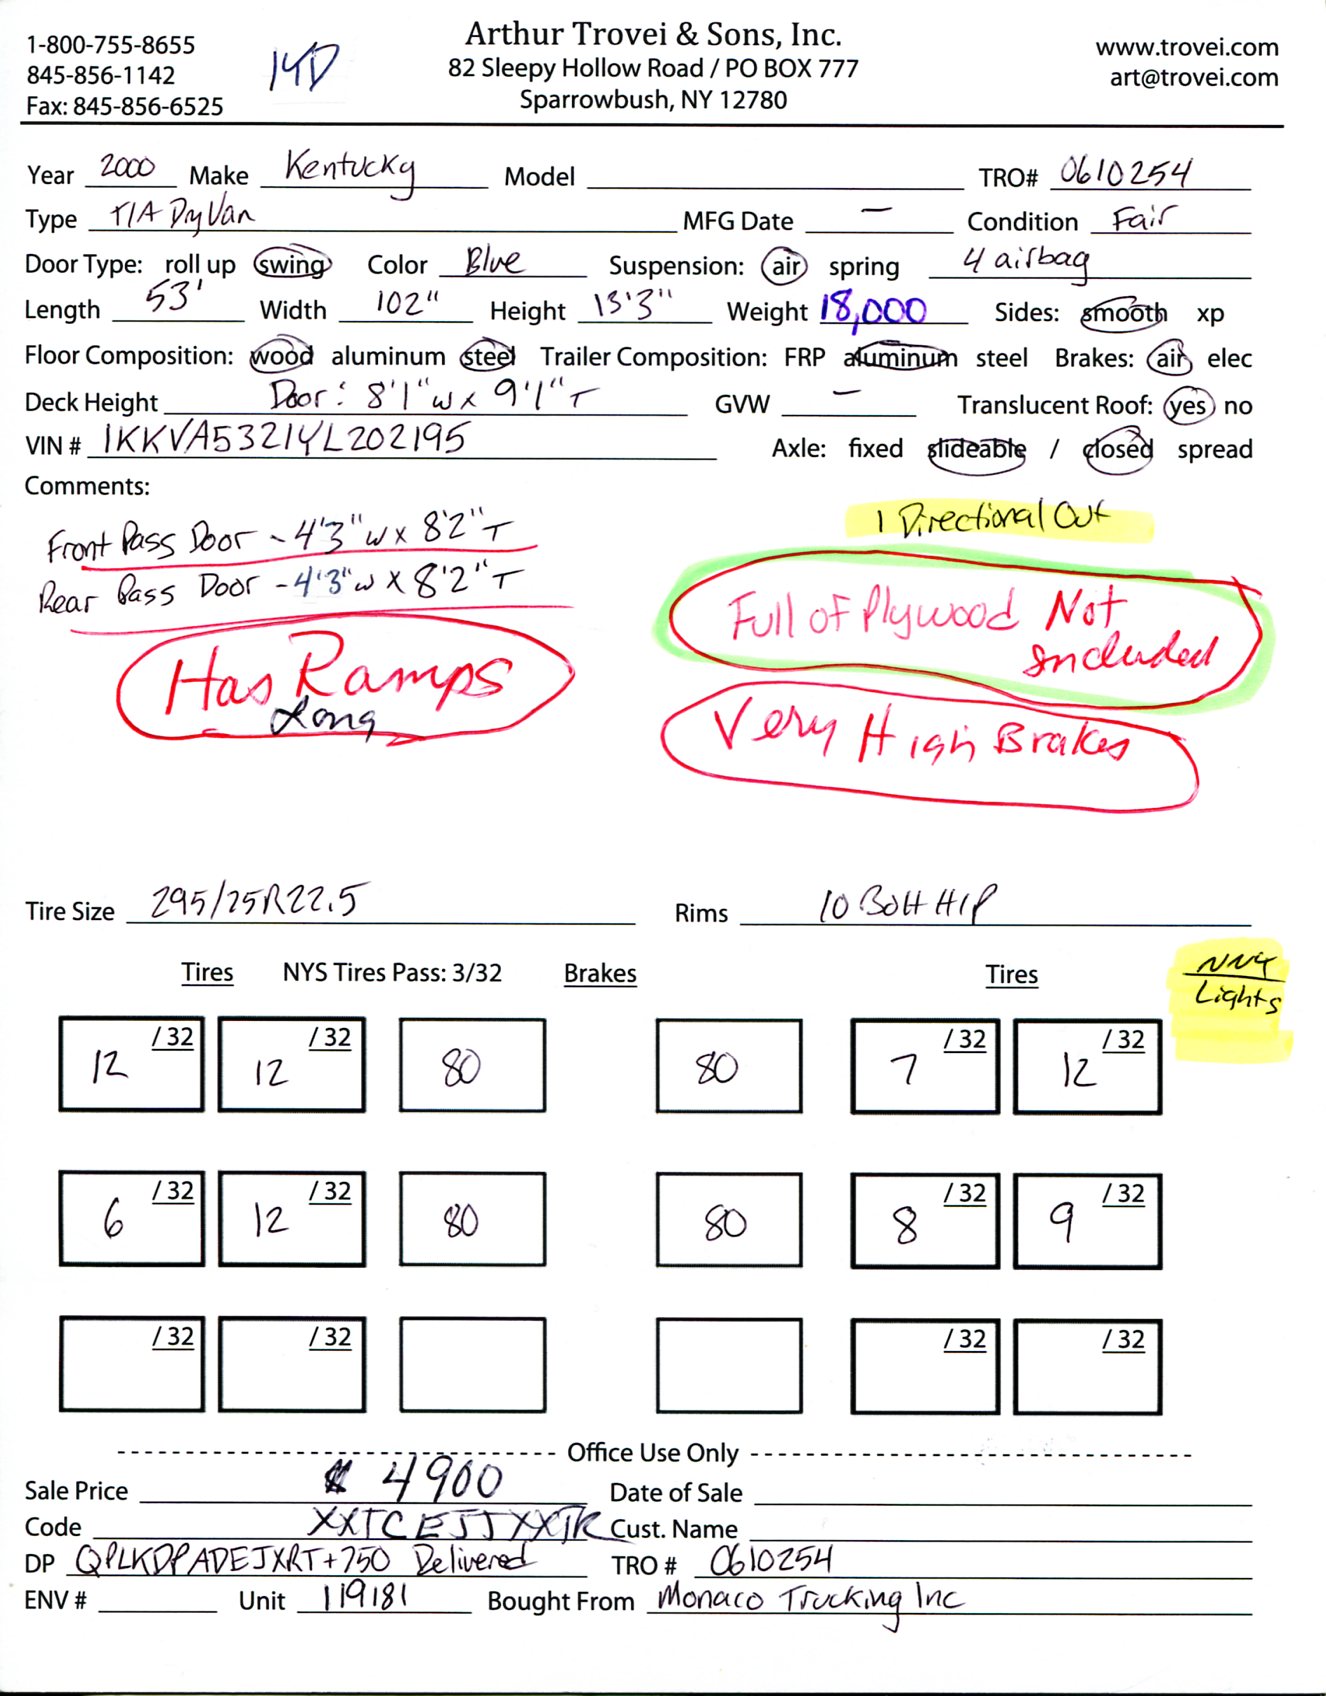 Arthur Trovei & Sons, Inc.
1-800-755-8655
845-856-1142
Fax: 845-856-6525
14D
82 Sleepy Hollow Road / PO BOX 777
Sparrowbush, NY 12780
www.trovei.com
art@trovei.com
Year 2000 Make Kentucky Model TRO# 0610254
Type T/A Dry Van MFG Date — Condition Fair
Door Type: roll up swing Color Blue Suspension: air spring 4 airbag
Length 53' Width 102" Height 13'3" Weight 18,000 Sides: smooth xp
Floor Composition: wood aluminum steel Trailer Composition: FRP aluminum steel Brakes: air elec
Deck Height Door: 8'1"w x 9'1"T GVW — Translucent Roof: yes no
VIN # 1KKVA5321YL202195 Axle: fixed slideable / closed spread
Comments:
Front Pass Door - 4'3"w x 8'2"T
Rear Pass Door - 4'3"w x 8'2"T
Has Ramps
Long
1 Directional Out
Full of Plywood Not
Included
Very High Brakes
Tire Size 295/75R22.5 Rims 10 Bolt H/P
Tires NYS Tires Pass: 3/32 Brakes Tires
Lights
12 /32 12 /32 80 80 7 /32 12 /32
6 /32 12 /32 80 80 8 /32 9 /32
/32 /32 /32 /32
Office Use Only
Sale Price 4900 Date of Sale
Code XXTCEJJXXTK Cust. Name
DP QPLKDPADEJXRT+750 Delivered TRO # 0610254
ENV # Unit 119181 Bought From Monaco Trucking Inc